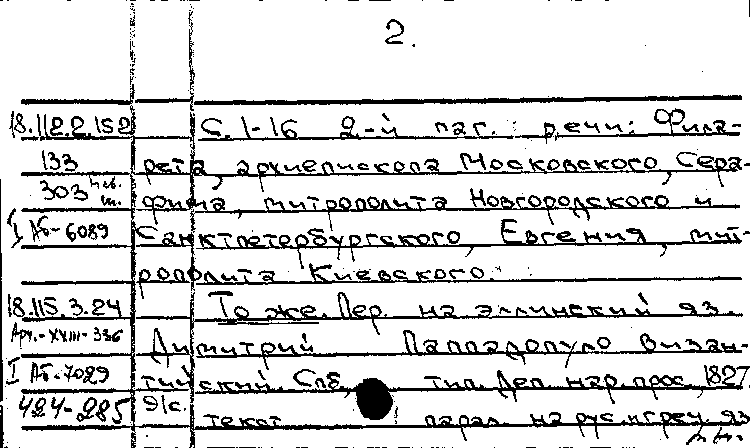 2.
18.112.2.152 С. 1-16 2-й паг.: речи: Фила-
133 рета, архиепископа Московского, Сера-
303 фима, митрополита Новгородского и
I Аб-6089 Санктпетербургского, Евгения, мит-
рополита Киевского.
18.115.3.24 То же. Пер. на эллинский яз.
Арх.-XXIII-336 Димитрий Паппадопуло Визан-
I Аб-7029 тийский. Спб, тип. Деп. нар. прос, 1827
424-285 9/с. текст парал. на рус. и греч. яз